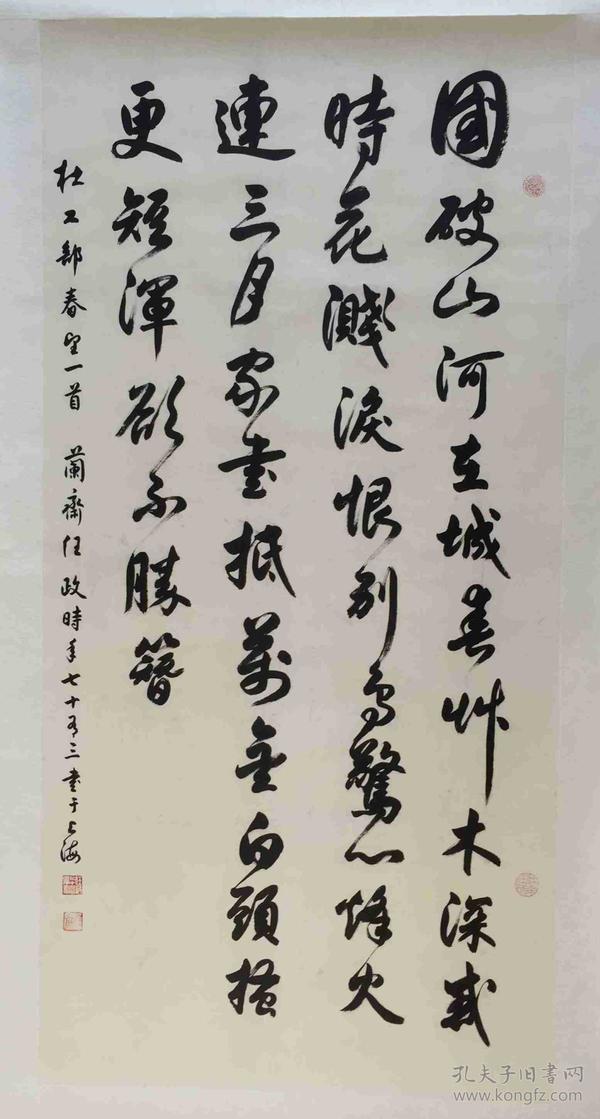 國破山河在城春草木深感
時花濺淚恨別鳥驚心烽火
連三月家書抵萬金白頭搔
更短渾欲不勝簪
杜工部春望一首 蘭齋任政時年七十有三書于上海
孔夫子旧書网
www.kongfz.com